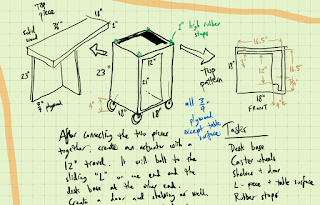 Top
piece
solid
wood
36"
18"
1"
1" high rubber
stops
23"
3/4" plywood
23"
12"
21"
18"
18"
Top
pattern
16.5"
18"
16.5"
18"
FRONT
all 3/4"
plywood
except table
surface
After connecting the two pieces
together, create an actuator with a
12" travel. It will bolt to the
sliding "L" on one end and the
desk base at the other end.
Create a door and shelving as well.
Tasks
Desk base
Caster steels
Shelves + door
L-piece + table surface
Rubber stops